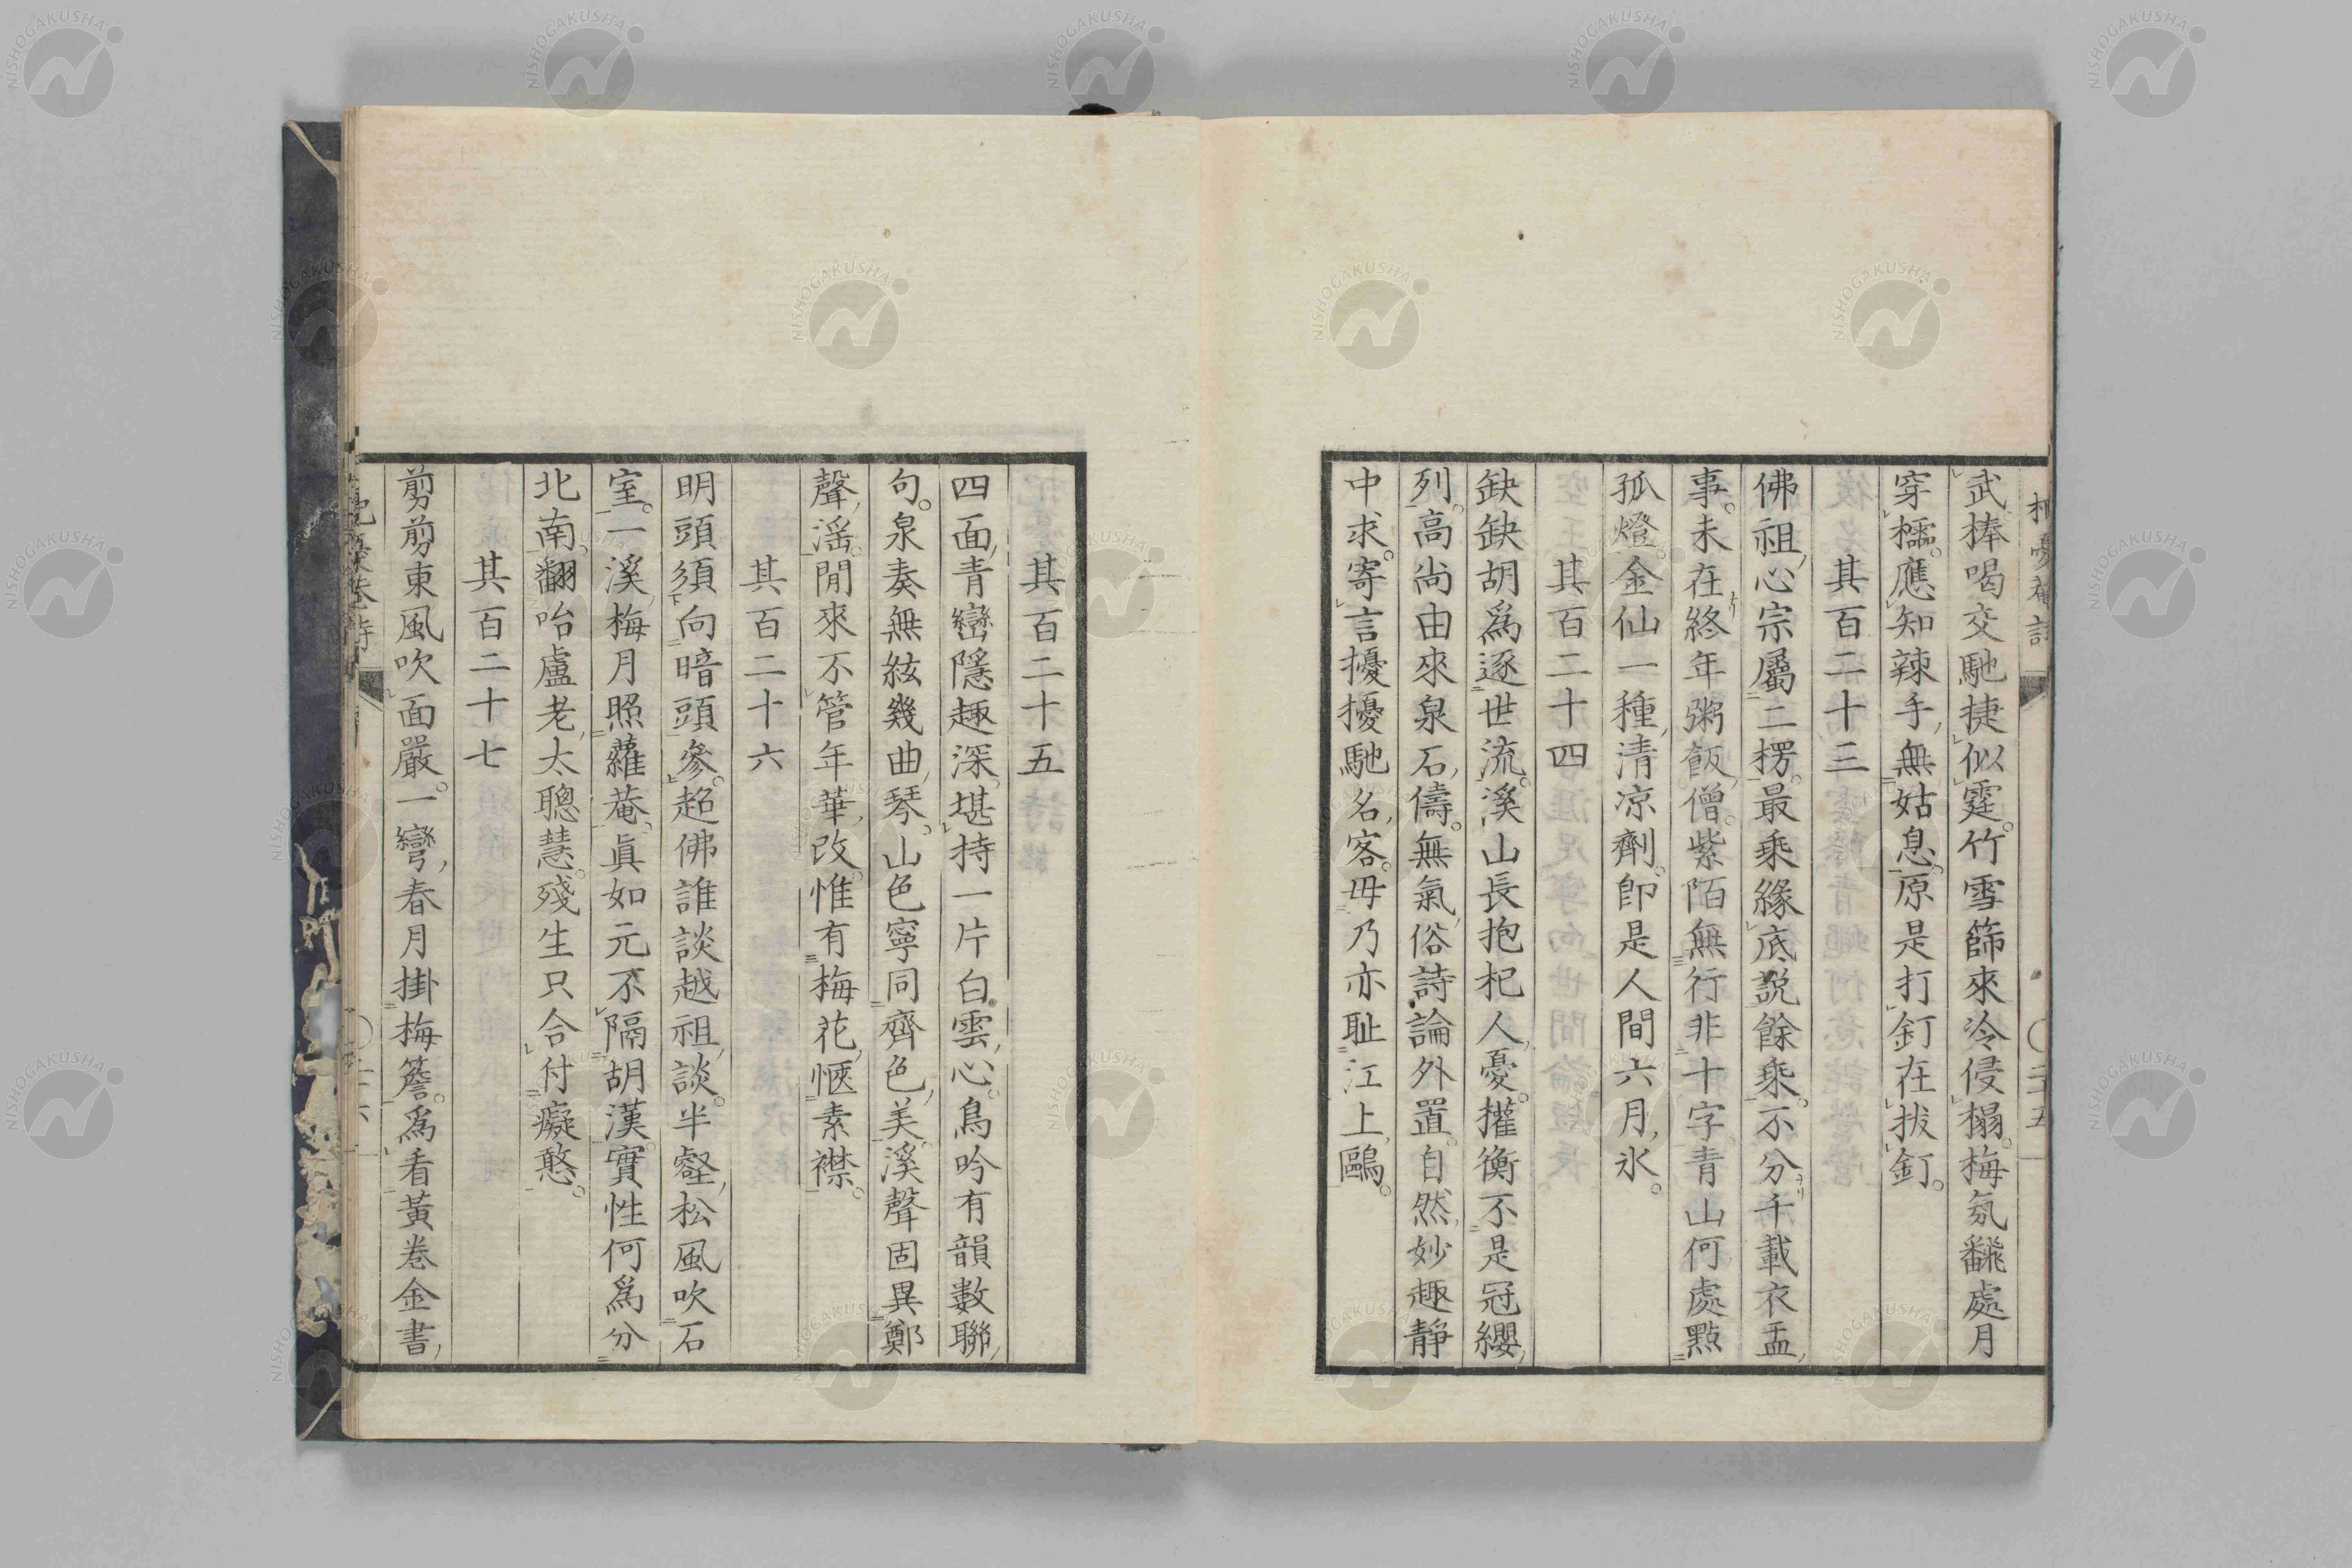 武棒喝交馳捷似霆竹雪篩來冷侵榻梅氛飜處月
穿櫺應知辣手無姑息原是打釘在拔釘
其百二十三
佛祖心宗屬二楞最乘緣底説餘乘不分千載衣盂
事未在終年粥飯僧紫陌無行非十字青山何處點
孤燈金仙一種清凉劑卽是人間六月氷
其百二十四
缺缺胡爲逐世流溪山長抱杞人憂權衡不是冠纓
列高尚由來泉石儔無氣俗詩論外置自然妙趣靜
中求寄言擾擾馳名客毋乃亦耻江上鷗
其百二十五
四面青巒隱趣深堪持一片白雲心鳥吟有韻數聯
句泉奏無絃幾曲琴山色寧同齊色美溪聲固異鄭
聲滛閒來不管年華改惟有梅花愜素襟
其百二十六
明頭須向暗頭參超佛誰談越祖談半壑松風吹石
室一溪梅月照蘿菴眞如元不隔胡漢實性何爲分
北南翻咍盧老太聰慧殘生只合付癡憨
其百二十七
剪剪東風吹面嚴一彎春月掛梅簷爲看黃卷金書
NISHOGAKUSHA